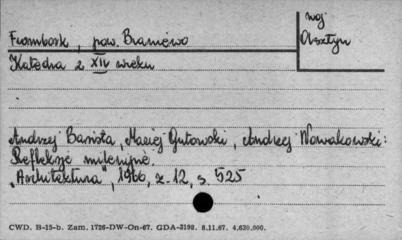 Frombork, pow. Braniewo
woj
Olsztyn
Katedra z XIV wieku
Andrzej Basista, Maciej Gutowski, Andrzej Nowakowski:
Refleksje milenijne.
"Architektura", 1966, z. 12, s. 525
CWD. B-15-b. Zam. 1726-DW-On-67. GDA-3198. 8.11.67. 4,630,000.